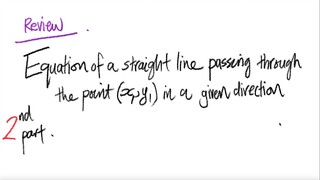 Review
Equation of a straight line passing through
the point (x₁, y₁) in a given direction
2nd
part.